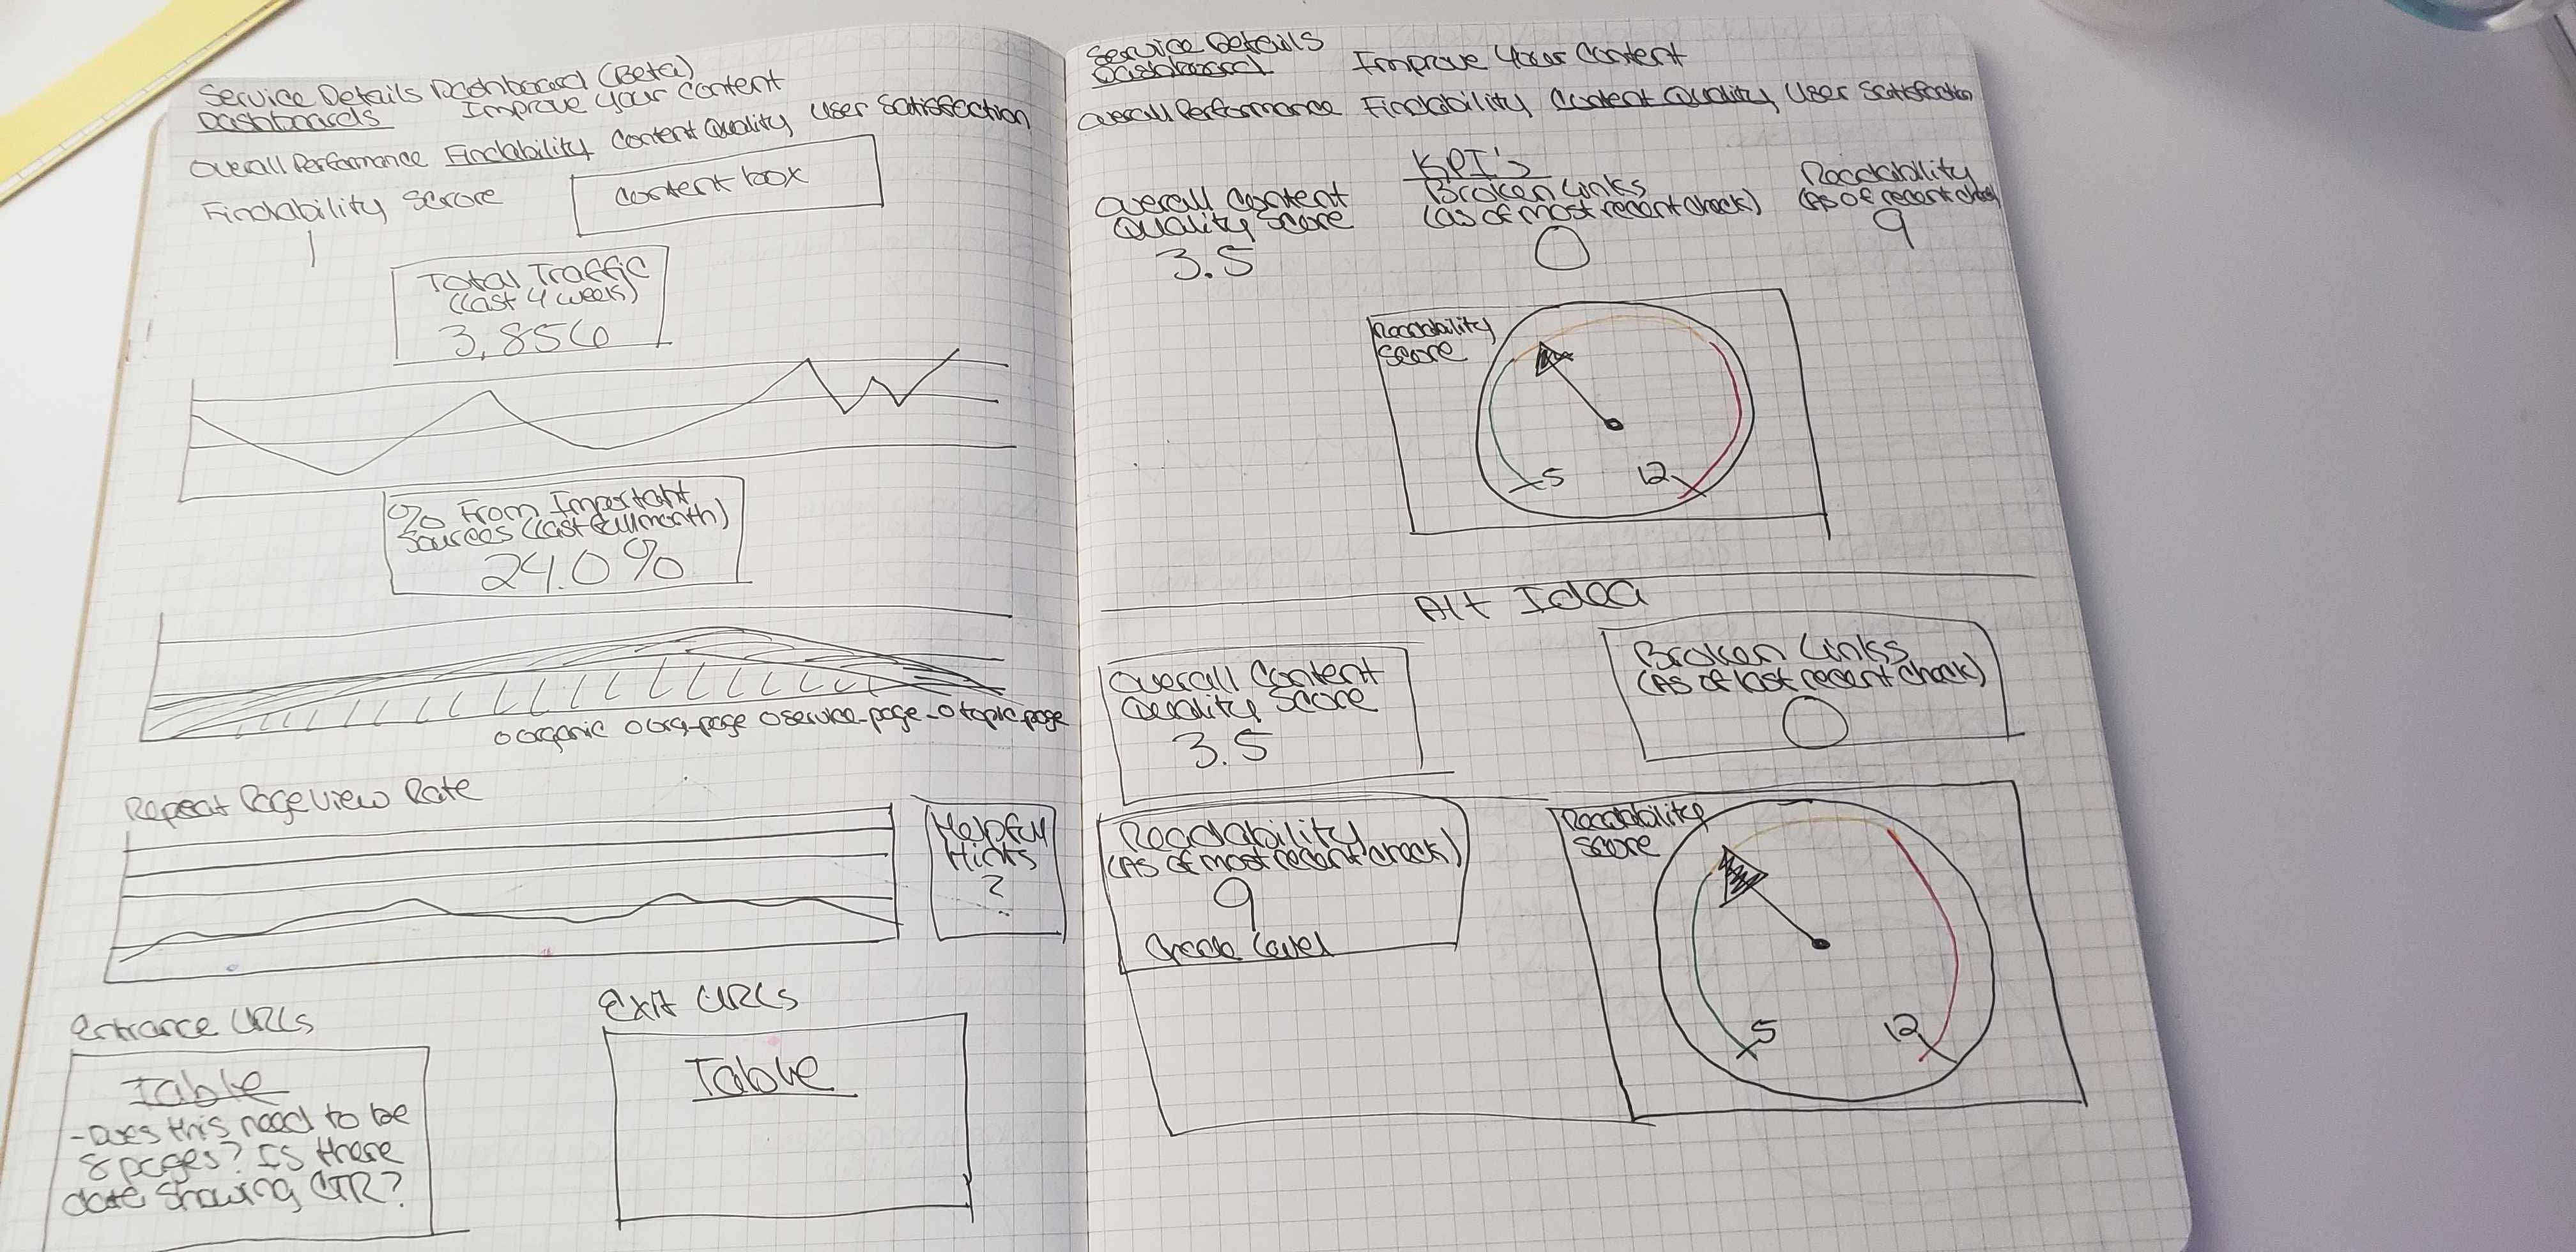 Service Details Dashboard (Beta)
Dashboards Improve Your Content
Overall Performance Findability Content Quality User Satisfaction
Findability Scrore
1
Content box
Total Traffic
(Last 4 week)
3,856
% From Important
Sources (last full month)
24.0%
o organic o org-page o service-page- o topic-page
Repeat Pageview Rate
Helpful
Hints
?
Entrance URLs
Table
- Does this need to be
8 pages? Is there
data showing CTR?
Exit URLs
Table
Service Details
Dashboard Improve Your Content
Overall Performance Findability Content Quality User Satisfaction
KPI's
Overall Content
Quality Score
3.5
Broken Links
(as of most recent check)
0
Readability
(As of recent check)
9
Readability
Score
5 12
Alt Idea
Overall Content
Quality Score
3.5
Broken Links
(As of last recent check)
0
Readability
(As of most recent check)
9
Grade Level
Readability
Score
5 12